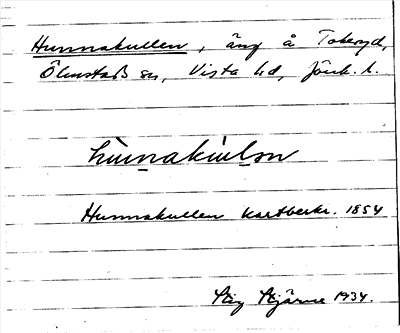 Hunnakullen, äng å Tokeryd,
Ölmstads sn, Vista hd, Jönk. l.
hùnnakùlọn
Hunnakullen kartbeskr. 1854
Stig Stjärne 1934.